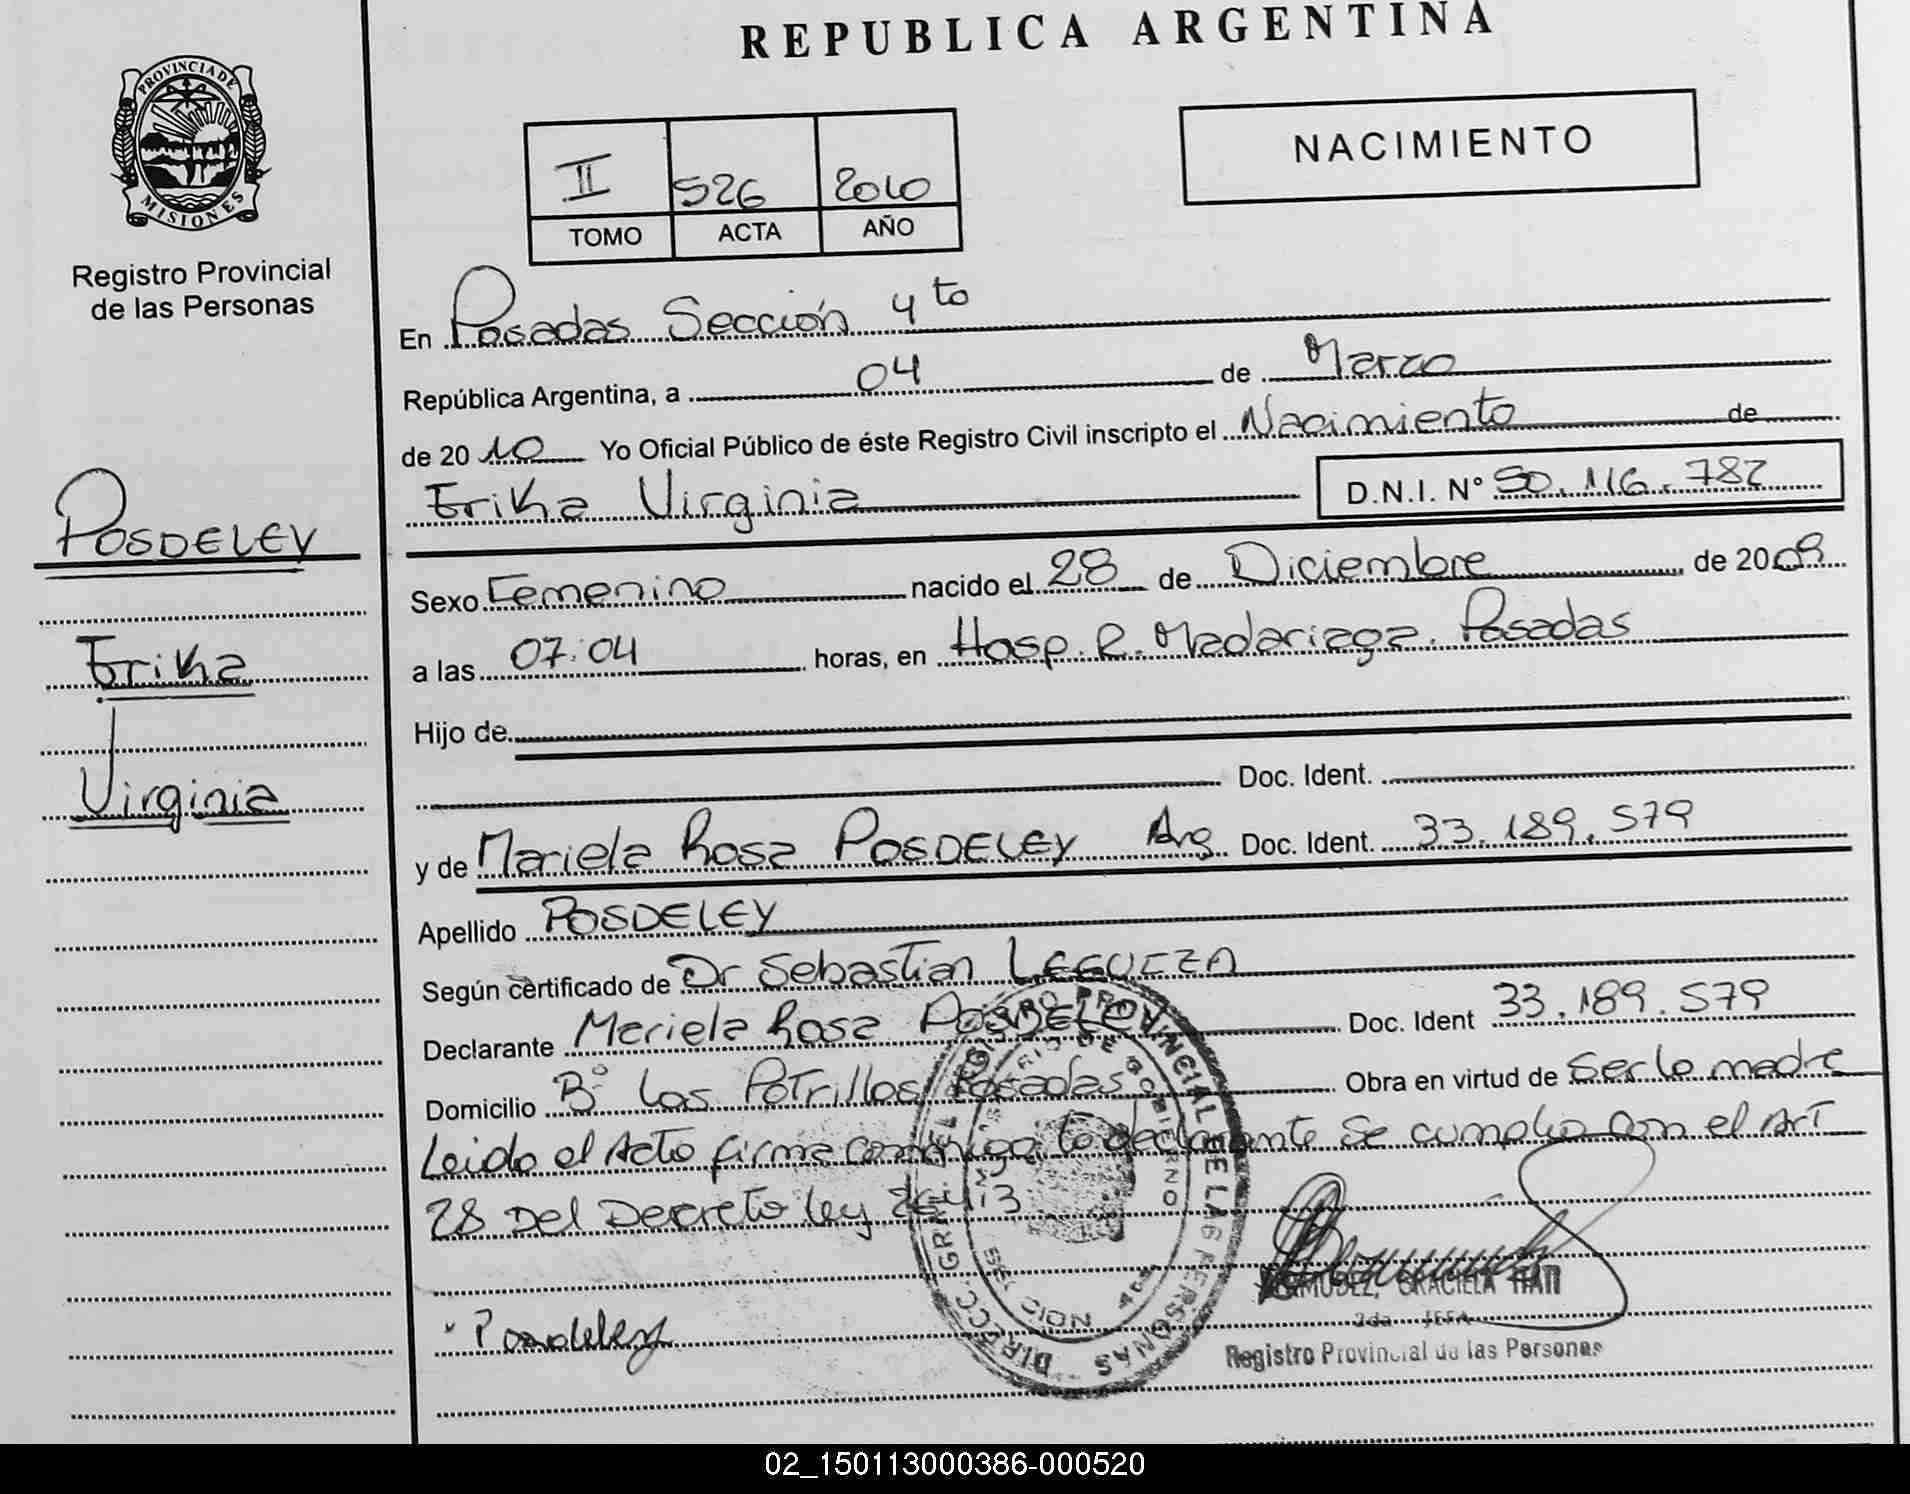 REPUBLICA ARGENTINA
PROVINCIA DE
MISIONES
Registro Provincial
de las Personas
NACIMIENTO
II 526 2010
TOMO ACTA AÑO
En Posadas Sección 4to
República Argentina, a 04 de Marzo
de 2010 Yo Oficial Público de éste Registro Civil inscripto el Nacimiento de
Erika Virginia D.N.I. N° 50.116.782
POSDELEY
Erika
Virginia
Sexo Femenino nacido el 28 de Diciembre de 2009
a las 07:04 horas, en Hosp. R. Madariaga. Posadas
Hijo de
Doc. Ident.
y de Mariela Rosa POSDELEY Arg Doc. Ident. 33.189.579
Apellido POSDELEY
Según certificado de Dr Sebastian
Declarante Mariela Rosa POSDELEY Doc. Ident 33.189.579
Domicilio B° Los Potrillos Posadas Obra en virtud de ser la madre
Leido el Acto firma conmigo la declarante Se cumplio con el Art
28 Del Decreto ley 26413
Posdeley
GRACIELA
2da JEFA
Registro Provincial de las Personas
02_150113000386-000520